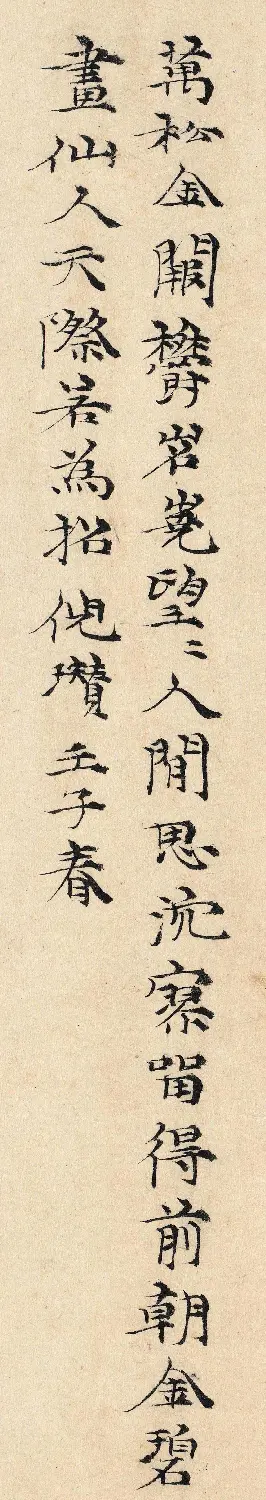 萬松金闕鬱岧嶤望〻人閒思沉寥留得前朝金碧
畫仙人天際若為招侂瓚壬子春